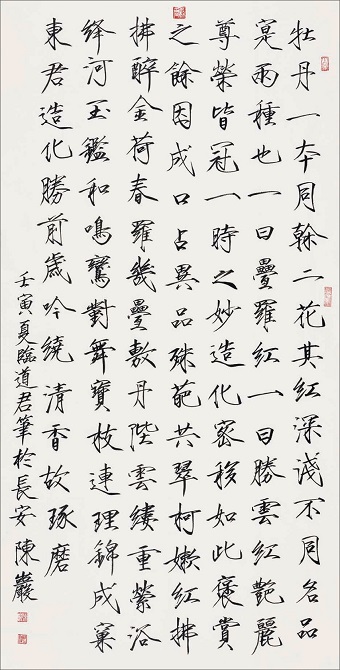 牡丹一本同幹二花其紅深淺不同名品
寔兩種也一曰疊羅紅一曰勝雲紅艷麗
尊榮皆冠一時之妙造化密移如此褒賞
之餘因成口占異品殊葩共翠柯嫩紅拂
拂醉金荷春羅幾疊敷丹陛雲縷重縈浴
絳河玉鑑和鳴鸞對舞寶枝連理錦成窠
東君造化勝前歲吟繞清香故琢磨
壬寅夏臨道君筆於長安陳巖